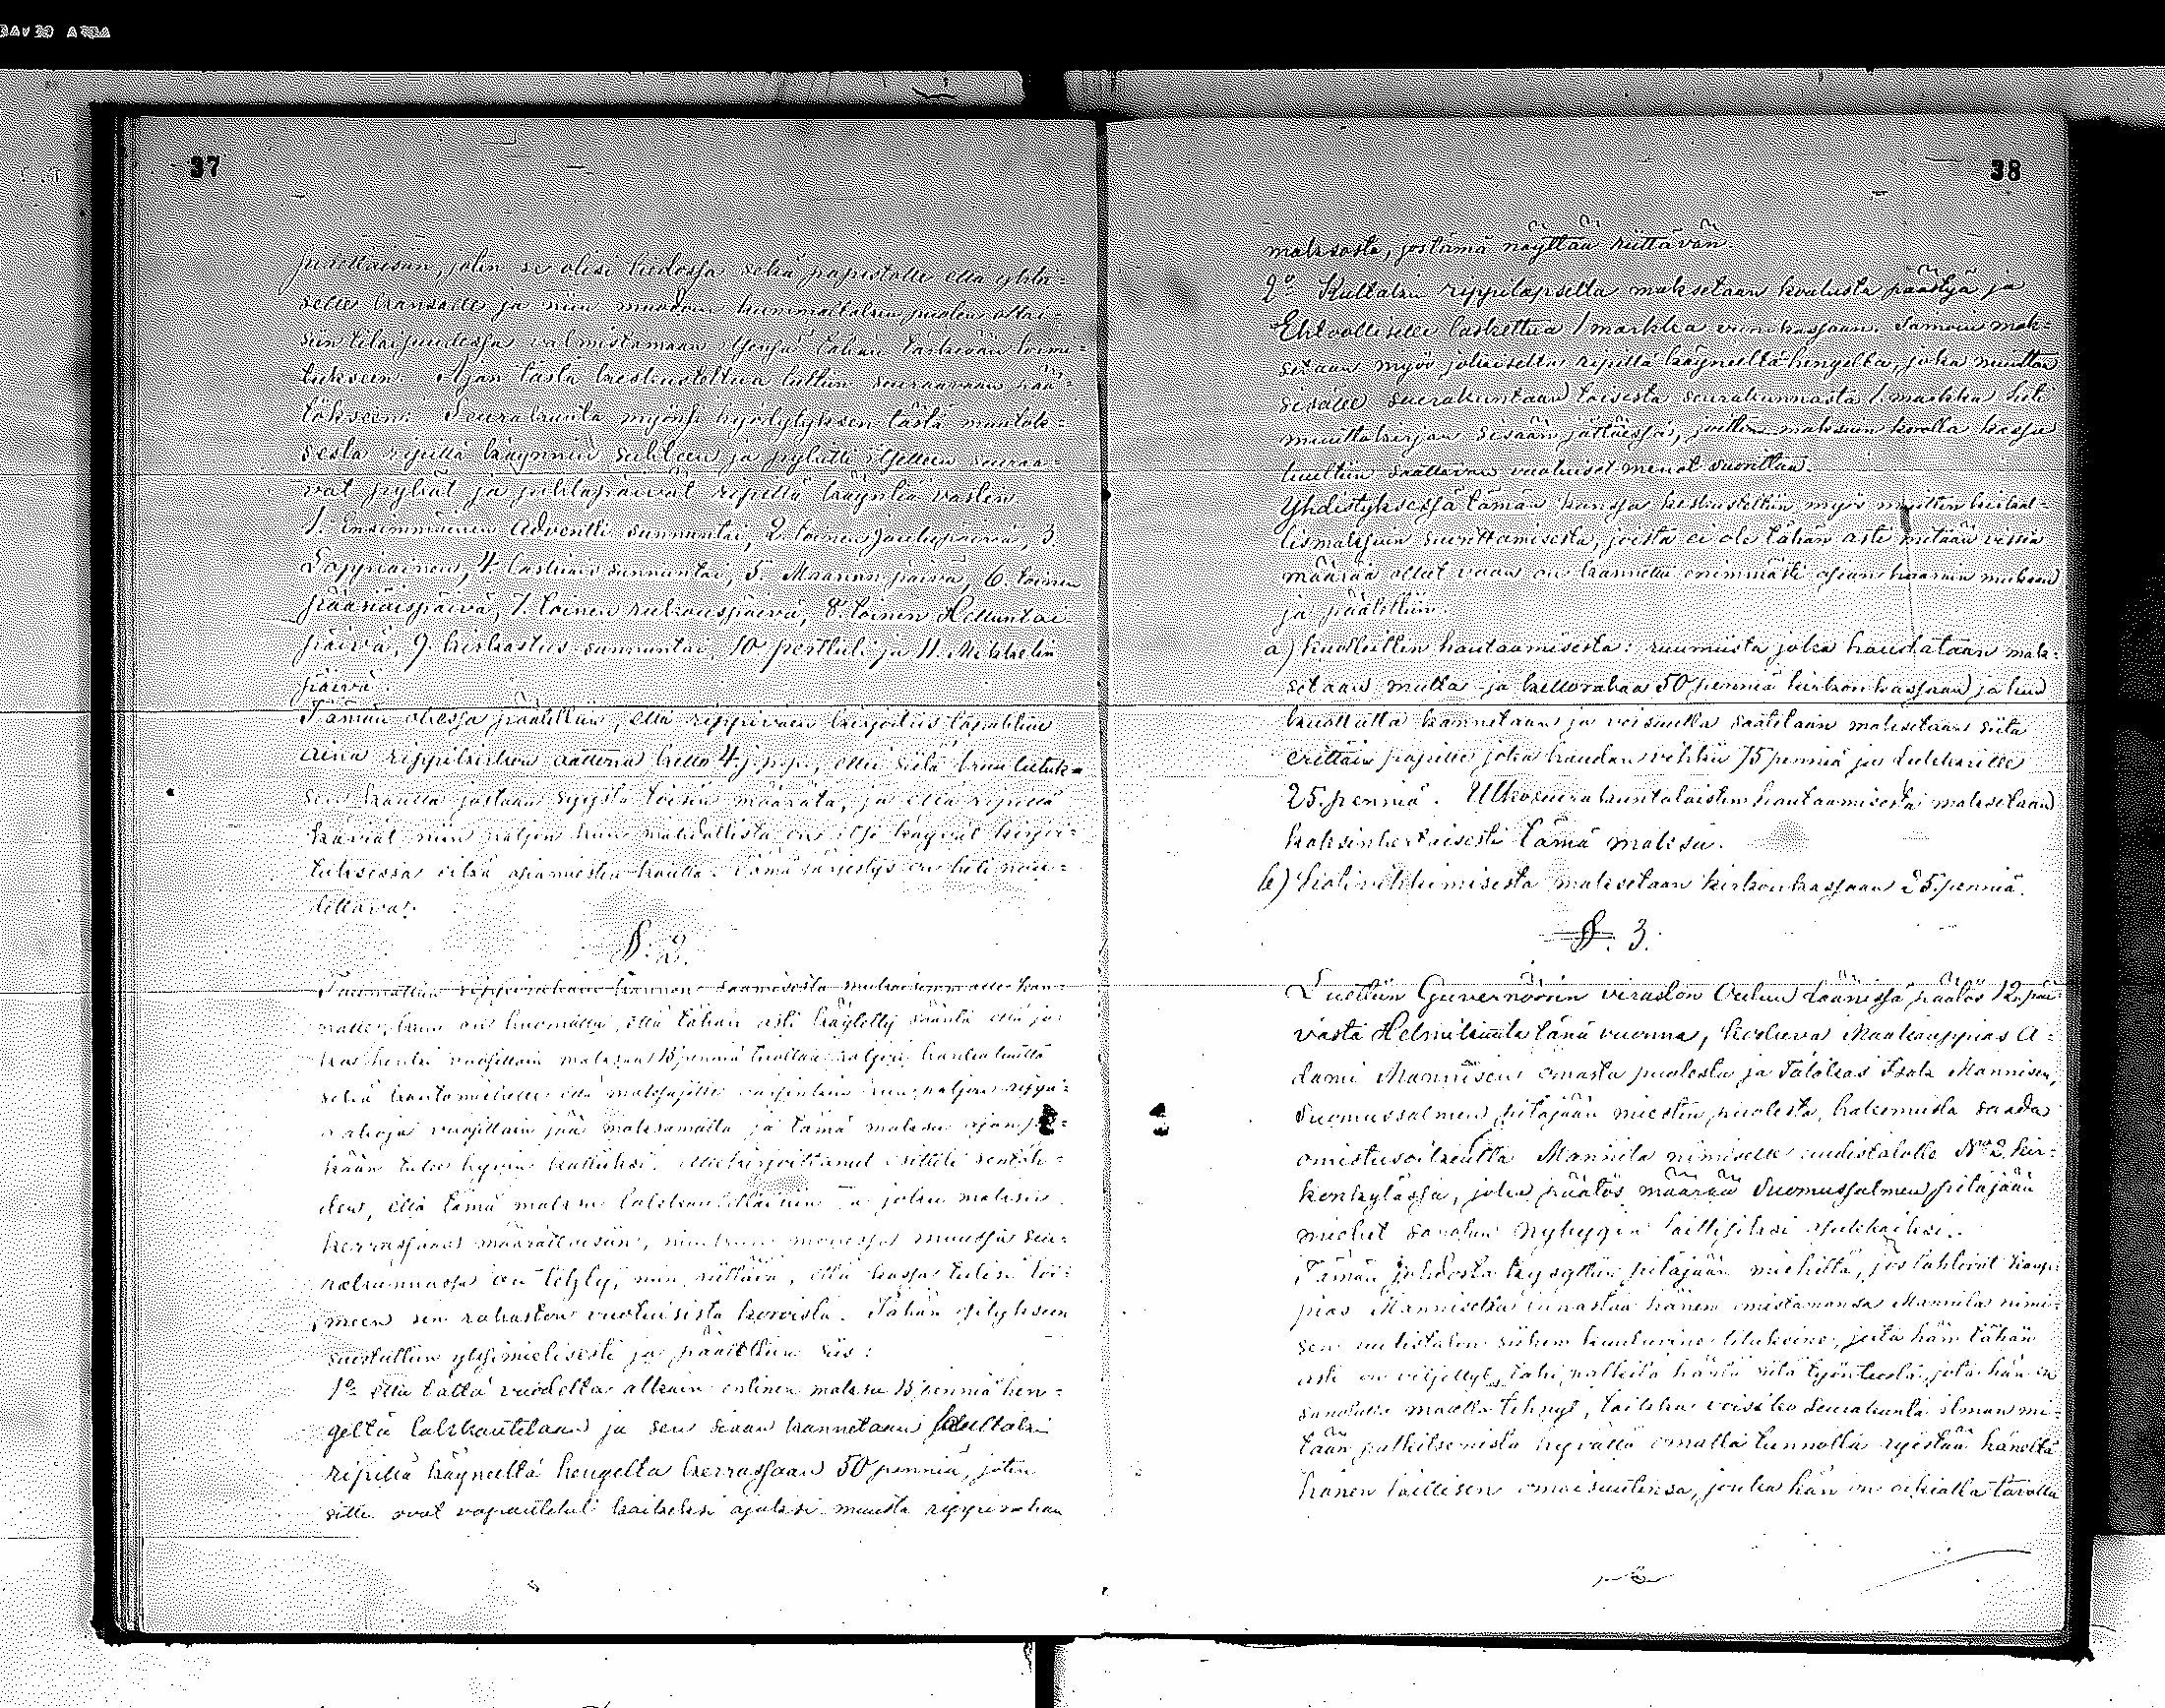 37
pidettäisiin, joten se olisi tiedossa sekä papistolle että yhtei-
selle kansalle ja niin muodoin kummallakin puolen oltai-
siin tilaisuudessa valmistamaan itsensä tähän tärkeään toimi-
tukseen. Ajan tästä keskusteltua tultiin seuraavaan pää-
tökseen: Seurakunta myönsi hyödytyksen tästä muutok-
sesta ripillä käynnin suhteen ja pyhitti itselleen seuraa-
vat pyhät ja juhlapäivät ripillä käyntiä varten
1. Ensimmäinen Adventti sunnuntai, 2. toinen Joulupäivä, 3.
Loppiainen, 4. laskiais sunnuntai, 5. Maarian päivä, 6. toinen
pääsiäispäivä, 7. toinen rukouspäivä, 8. toinen Helluntai
päivä, 9. kirkastus sunnuntai, 10 perttuli ja 11. Mikkelin
päivä.
Tämän ohessa päätettiin, että rippiväen kirjoitus tapahtuu
aina rippikirkon aattona kello 4 j.pp., ellei siitä kuulutuk-
sen kautta jostain syystä toisin määrätä, ja että ripillä
kävijät niin paljon kuin mahdollista on itse käyvät kirjoi-
tuksessa eikä asiamiesten kautta. Tämä järjestys on heti nou-
dettava.
§. 2.
rippirahain kannon saamisesta mukavammalle kan-
nalle, kun on huomattu, että tähän asti käytetty sääntö että jo-
kas henki vuosittain maksaa 13 penniä tuottaa paljon hankaluutta
sekä kantomiehelle että maksajille
rahoja vuosittain jää maksamatta ja tämä maksu ajan pit-
kään tulee hyvin kalliiksi. Allekirjoittanut esitteli sentäh-
den, että tämä maksu lakkautettaisiin ja joku maksu
kerrassaan määrättäisiin, niinkuin monessa muussa seu-
rakunnassa on tehty, niin riittävä, että kassa tulisi toi-
meen sen rahaston vuotuisista koroista. Tähän esitykseen
suostuttiin yksimielisesti ja päätettiin siis:
1o että tältä vuodelta alkain entinen maksu 13 penniä hen-
geltä lakkautetaan ja sen siaan kannetaan kultakin
ripillä käyneeltä hengeltä kerrassaan 50 penniä, joten
sitte ovat vapautetut kaikeksi ajaksi muusta rippirahan
38
maksosta, jostämä näyttää riittävän.
2o Kultakin rippilapselta maksetaan koulusta päästyä ja
Ehtoolliselle laskettua 1 markka viinikassaan. Samoin mak-
setaan myös jokaiselta ripillä käyneeltä hengeltä, joka muuttaa
sisälle seurakuntaan toisesta seurakunnasta 1 markka heti
muuttokirjan sisään jättäessä, joitten maksuin koolla kassa
luultiin saattavan vuotuiset menot suorittaa.
Yhdistyksessä tämän kanssa keskusteltiin myös muitten kirkol-
lismaksuin suorittamisesta, joista ei ole tähän asti mitään vissiä
määrää ollut vaan on kannettu enimmästi asian haarain mukaan
ja päätettiin.
a) kuolleitten hautaamisesta: ruumiista joka haudataan mak-
setaan multa ja kellorahaa 50 penniä kirkonkassaan ja kun
kuollutta kannetaan ja veisuulla saatetaan maksetaan siitä
erittäin papille joka haudan vihkii 75 penniä ja lukkarille
25 penniä. Ulkoseurakuntalaisten hautaamisesta maksetaan
kaksinkertaisesti tämä maksu.
b) Säätivihkimisestä maksetaan kirkonkassaan 25 penniä.
§. 3.
Luettiin Guvernöörin viraston Oulun läänissä päätös 12. päi-
västä Helmikuuta tänä vuonna, koskeva Maakauppias A-
dami Mannisen omasta puolesta ja Talokas Isak Mannisen,
Suomussalmen pitäjään miesten puolesta, hakemusta saada
omistusoikeutta Mannila nimiselle uudistalolle No 2 kir-
konkylässä, joka päätös määrää Suomussalmen pitäjään
miehet sanotun nykyään laillisiksi asukkaiksi.
Tämän johdosta kysyttiin pitäjään miehiltä, jos tahtovat kaup-
pias Manniselta lunastaa hänen omistamansa Mannila nimi-
sen uudistalon siihen kuuluvine tiluksine, joita hän tähän
asti on viljellyt, tahi palkita häntä siitä työnteosta, jota hän on
sanotulla maalla tehnyt, taikka voisiko Seurakunta ilman mi-
tään palkitsemista hyvällä omalla tunnolla ryöstää häneltä
hänen laillisen omaisuutensa, jonka hän on oikialla tavalla